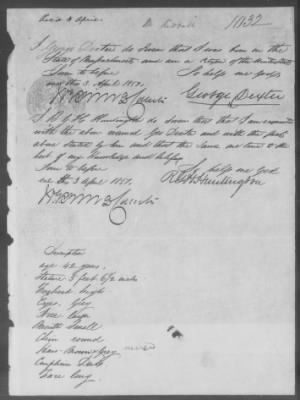 1032
I George Dexter do swear that I was born in the
State of Massachusetts and am a Citizen of the United States
Sworn to before So help me god
me this 3 April 1850.
George Dexter
I R G H Huntington do swear that I am acquainted
with the above named Geo Dexter and with the facts
above stated by him and that the same are true to the
best of my knowledge and belief
Sworn to before So help me God
me this 3 April 1850. R G H Huntington
Description
age 42 years.
Stature 5 feet 6 1/2 inches
Forehead high
Eyes Grey
Nose large
Mouth Small
Chin round
Hair Brown & Grey mixed
Complexion Dark
Face long.